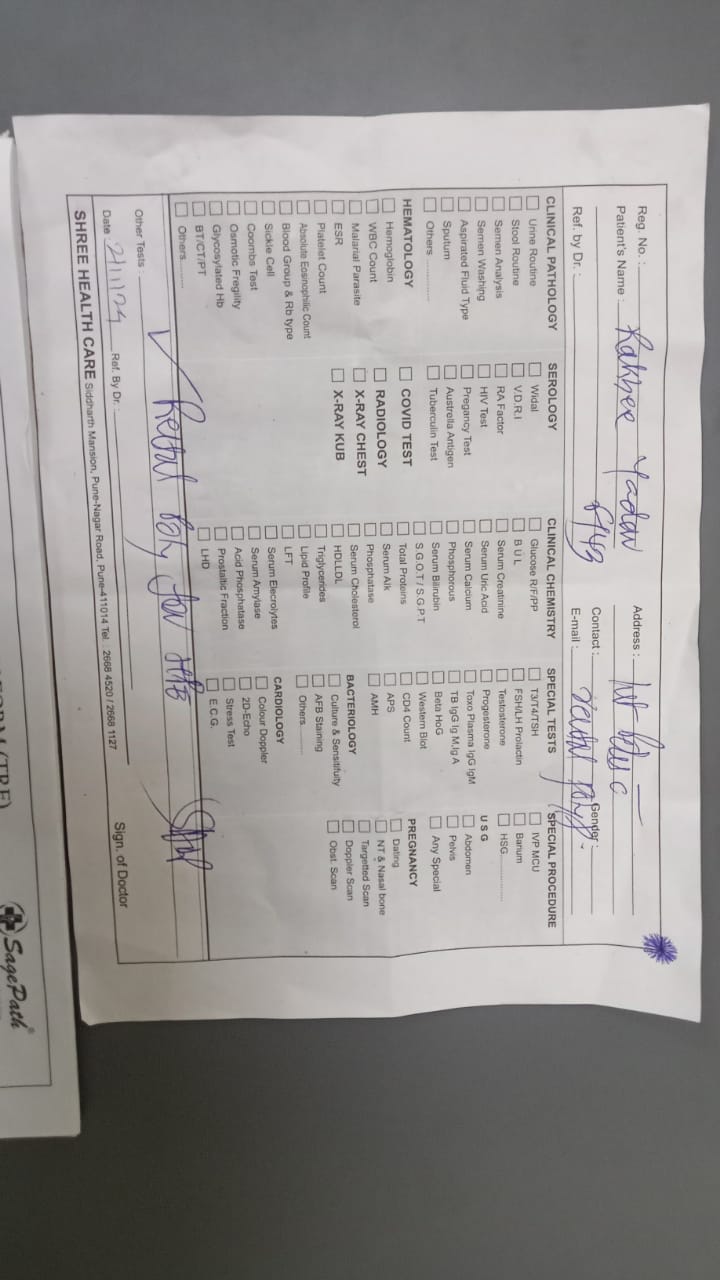 Reg. No. :
Patient's Name : Yadav
F/43
Ref. by Dr. :
Address :
Contact :
Gender :
E-mail :
CLINICAL PATHOLOGY
Urine Routine
Stool Routine
Semen Analysis
Semen Washing
Aspirated Fluid Type
Sputum
Others ..............
HEMATOLOGY
Hemoglobin
WBC Count
Malarial Parasite
ESR
Platelet Count
Absolute Eosinophilic Count
Blood Group & Rb type
Sickle Cell
Coombs Test
Osmotic Fregility
Glycosylated Hb
BT/CT/PT
Others..........
SEROLOGY
Widal
V.D.R.I
RA Factor
HIV Test
Pregancy Test
Austrella Antigen
Tuberculin Test
COVID TEST
RADIOLOGY
X-RAY CHEST
X-RAY KUB
CLINICAL CHEMISTRY
Glucose R/F/PP
B U L
Serum Creatinine
Serum Uric Acid
Serum Calcium
Phosphorous
Serum Bilirubin
S.G.O.T / S.G.P.T
Total Proteins
Serum Alk
Phosphatase
Serum Cholesterol
HDL/LDL
Triglycerides
Lipid Profile
LFT
Serum Elecrolytes
Serum Amylase
Acid Phosphatase
Prostaltic Fraction
LHD
SPECIAL TESTS
T3/T4/TSH
FSH/LH Prolactin
Testosterone
Progesterone
Toxo Plasma IgG IgM
TB IgG Ig M,Ig A
Beta HoG
Western Blot
CD4 Count
APS
AMH
BACTERIOLOGY
Culture & Sensitifuity
AFB Staining
Others..........
CARDIOLOGY
Colour Doppler
2D-Echo
Stress Test
E.C.G.
SPECIAL PROCEDURE
IVP MCU
Barium
HSG..................
U S G
Abdomen
Pelvis
Any Special
PREGNANCY
Dating
NT & Nasal bone
Targetted Scan
Doppler Scan
Obst. Scan
Other Tests
Date 2/11/24 Ref. By Dr. Sign. of Doctor
SHREE HEALTH CARE Siddharth Mansion, Pune-Nagar Road, Pune-411014 Tel. 2668 4520 / 2668 1127
SagePath®